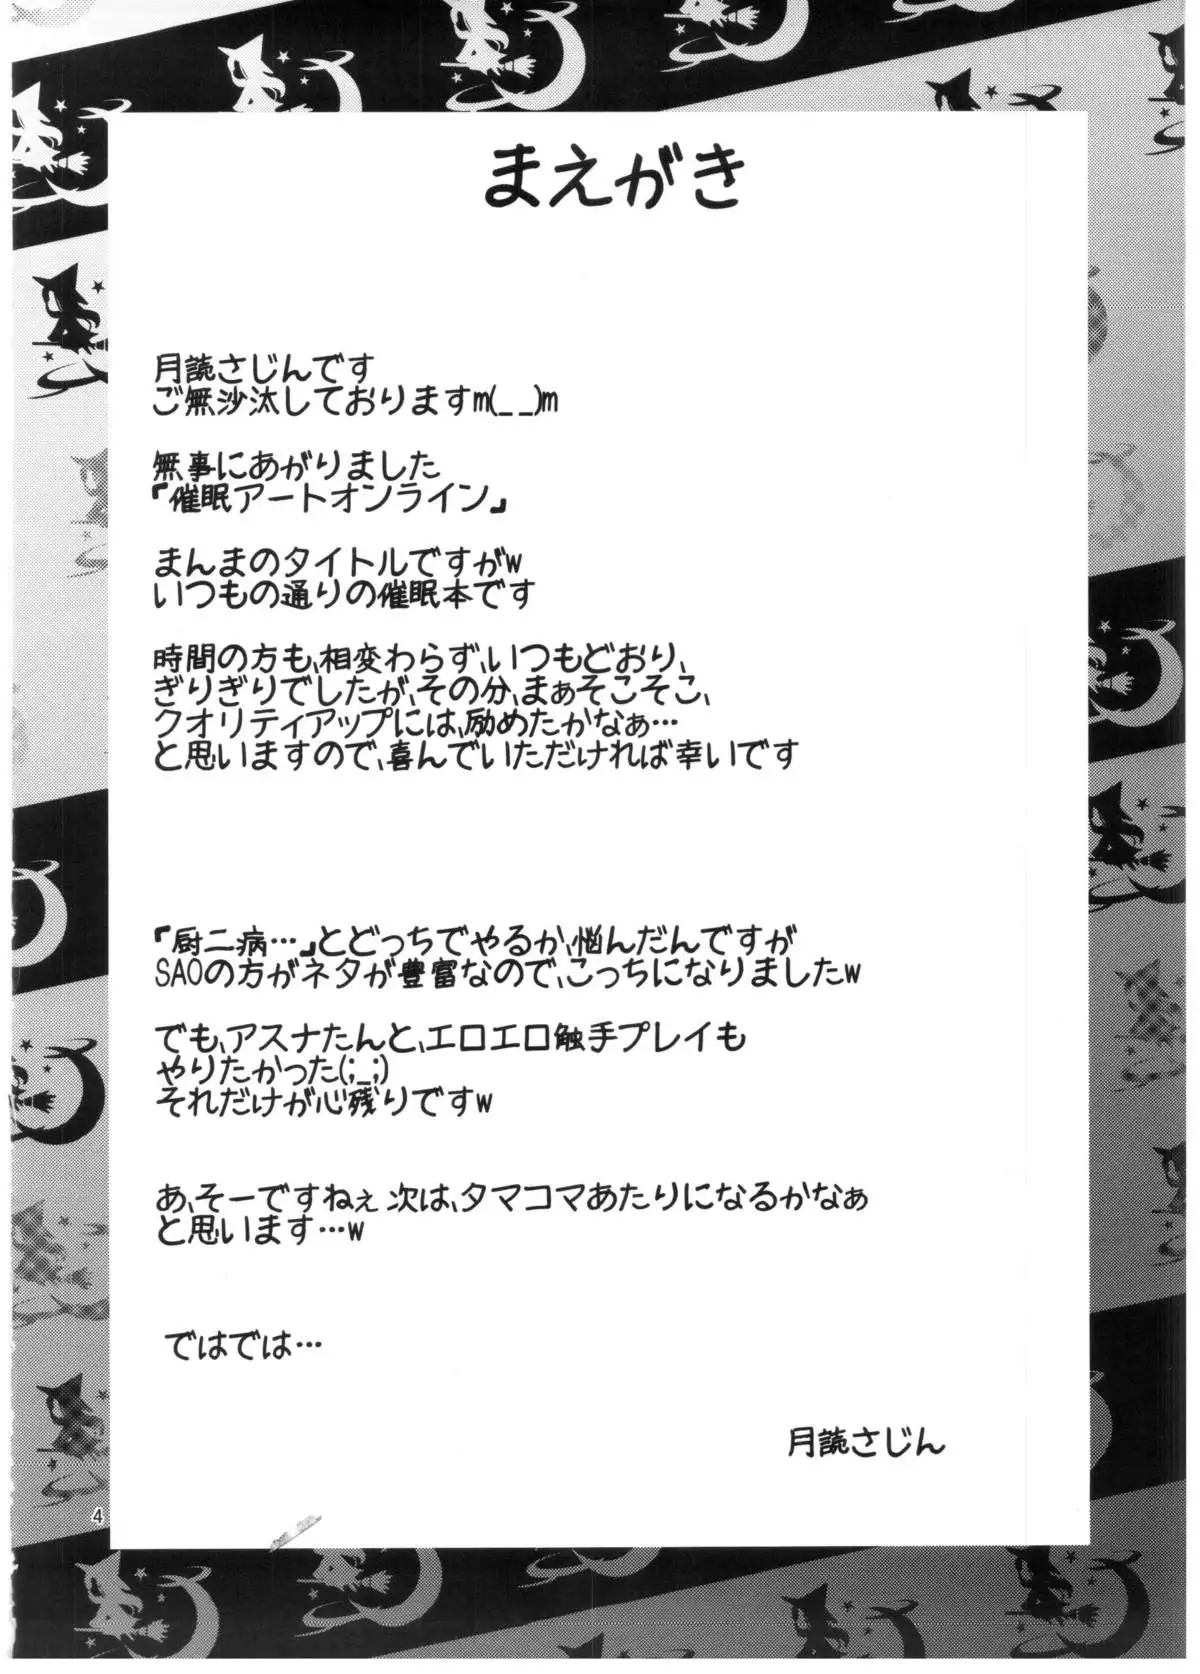 まえがき
月読さじんです
ご無沙汰しておりますm(_ _)m
無事にあがりました
『催眠アートオンライン』
まんまのタイトルですがw
いつもの通りの催眠本です
時間の方も、相変わらず、いつもどおり、
ぎりぎりでしたが、その分、まぁそこそこ、
クオリティアップには、励めたかなぁ…
と思いますので、喜んでいただければ幸いです
『厨二病…』とどっちでやるか、悩んだんですが
SAOの方がネタが豊富なので、こっちになりましたw
でも、アスナたんと、エロエロ触手プレイも
やりたかった(;_;)
それだけが心残りですw
あ、そーですねぇ 次は、タマコマあたりになるかなぁ
と思います…w
ではでは…
月読さじん
4